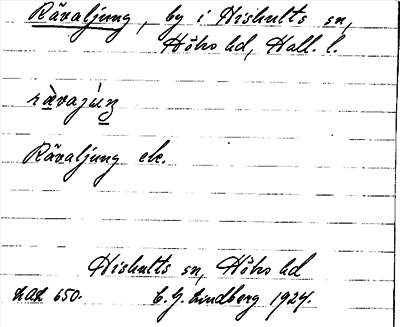 Rävaljung, by i Hishults sn,
Höks hd, Hall. l.
ràvajúŋ
Rävaljung ek.
Hishults sn, Höks hd
Lad 650. C. G. Lindberg 1927.